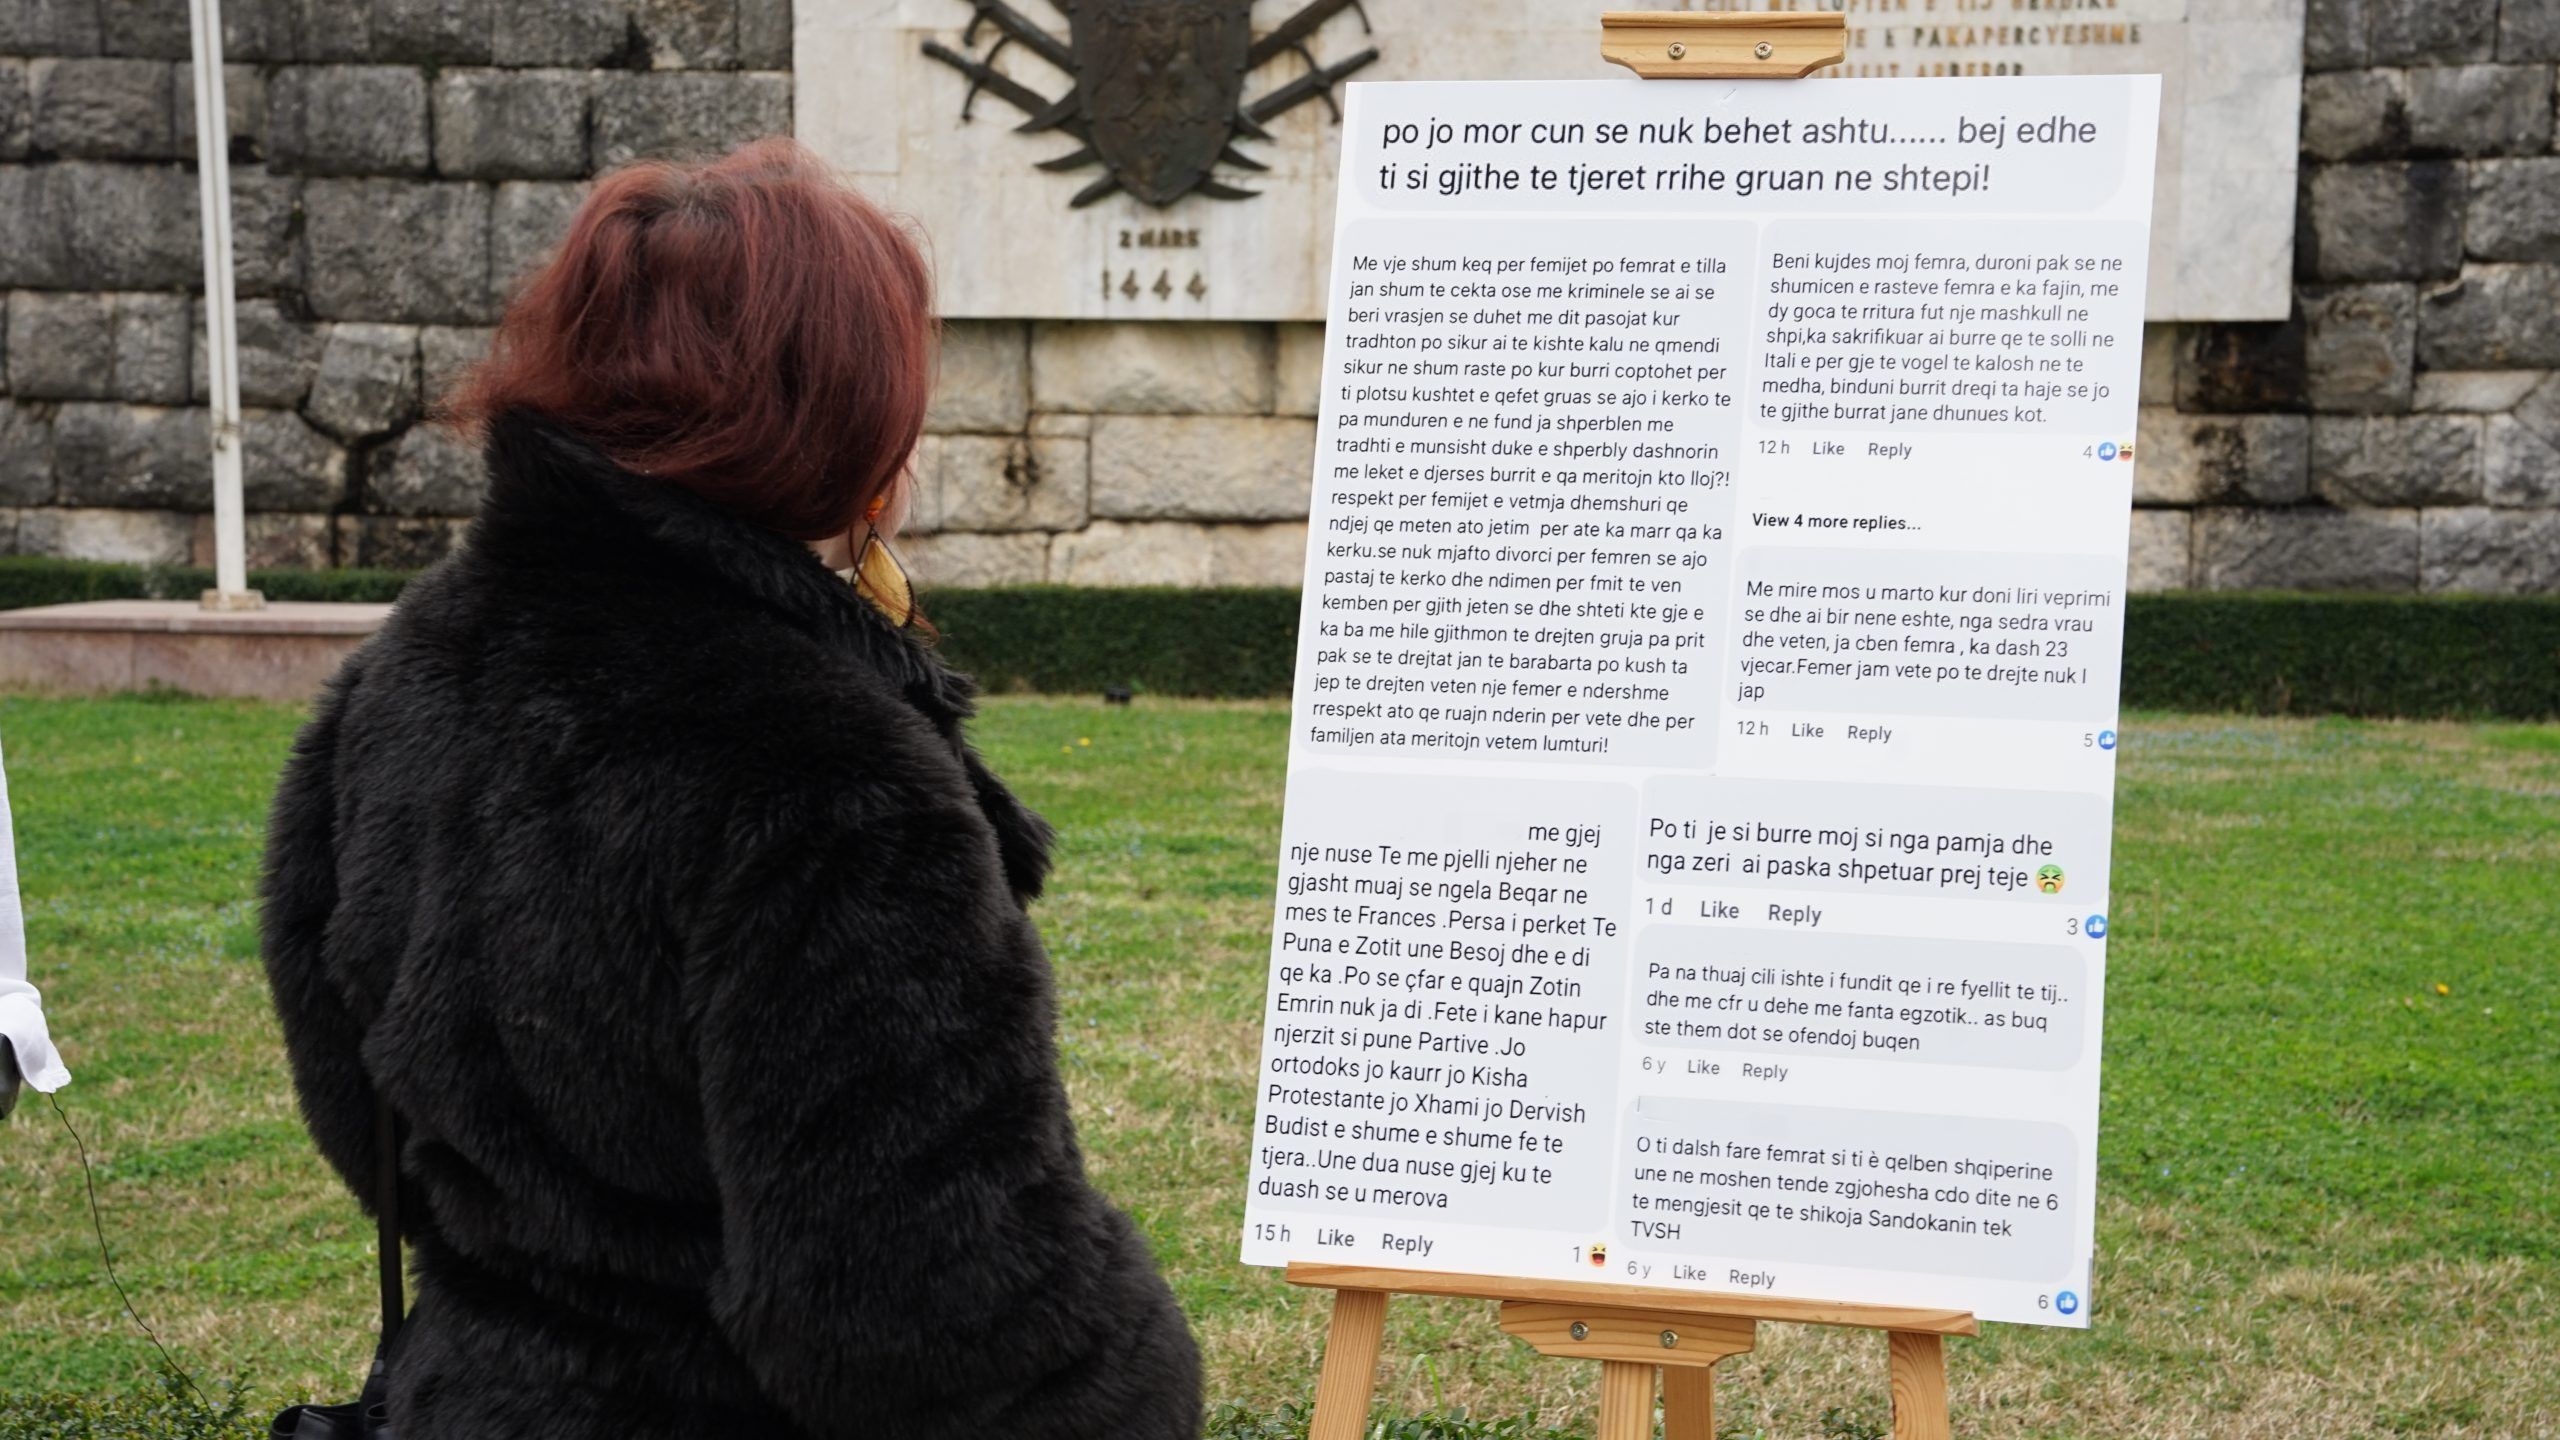 E PAKAPERCYESHME
2 MARS
1444
po jo mor cun se nuk behet ashtu...... bej edhe
ti si gjithe te tjeret rrihe gruan ne shtepi!
Me vje shum keq per femijet po femrat e tilla
jan shum te cekta ose me kriminele se ai se
beri vrasjen se duhet me dit pasojat kur
tradhton po sikur ai te kishte kalu ne qmendi
sikur ne shum raste po kur burri coptohet per
ti plotsu kushtet e qefet gruas se ajo i kerko te
pa munduren e ne fund ja shperblen me
tradhti e munsisht duke e shperbly dashnorin
me leket e djerses burrit e qa meritojn kto lloj?!
respekt per femijet e vetmja dhemshuri qe
ndjej qe meten ato jetim per ate ka marr qa ka
kerku.se nuk mjafto divorci per femren se ajo
pastaj te kerko dhe ndimen per fmit te ven
kemben per gjith jeten se dhe shteti kte gje e
ka ba me hile gjithmon te drejten gruja pa prit
pak se te drejtat jan te barabarta po kush ta
jep te drejten veten nje femer e ndershme
rrespekt ato qe ruajn nderin per vete dhe per
familjen ata meritojn vetem lumturi!
Beni kujdes moj femra, duroni pak se ne
shumicen e rasteve femra e ka fajin, me
dy goca te rritura fut nje mashkull ne
shpi,ka sakrifikuar ai burre qe te solli ne
Itali e per gje te vogel te kalosh ne te
medha, binduni burrit dreqi ta haje se jo
te gjithe burrat jane dhunues kot.
12 h Like Reply 4
View 4 more replies...
Me mire mos u marto kur doni liri veprimi
se dhe ai bir nene eshte, nga sedra vrau
dhe veten, ja cben femra , ka dash 23
vjecar.Femer jam vete po te drejte nuk I
jap
12 h Like Reply 5
me gjej
nje nuse Te me pjelli njeher ne
gjasht muaj se ngela Beqar ne
mes te Frances .Persa i perket Te
Puna e Zotit une Besoj dhe e di
qe ka .Po se çfar e quajn Zotin
Emrin nuk ja di .Fete i kane hapur
njerzit si pune Partive .Jo
ortodoks jo kaurr jo Kisha
Protestante jo Xhami jo Dervish
Budist e shume e shume fe te
tjera..Une dua nuse gjej ku te
duash se u merova
15 h Like Reply 1
Po ti je si burre moj si nga pamja dhe
nga zeri ai paska shpetuar prej teje
1 d Like Reply 3
Pa na thuaj cili ishte i fundit qe i re fyellit te tij..
dhe me cfr u dehe me fanta egzotik.. as buq
ste them dot se ofendoj buqen
6 y Like Reply
O ti dalsh fare femrat si ti è qelben shqiperine
une ne moshen tende zgjohesha cdo dite ne 6
te mengjesit qe te shikoja Sandokanin tek
TVSH
6 y Like Reply 6